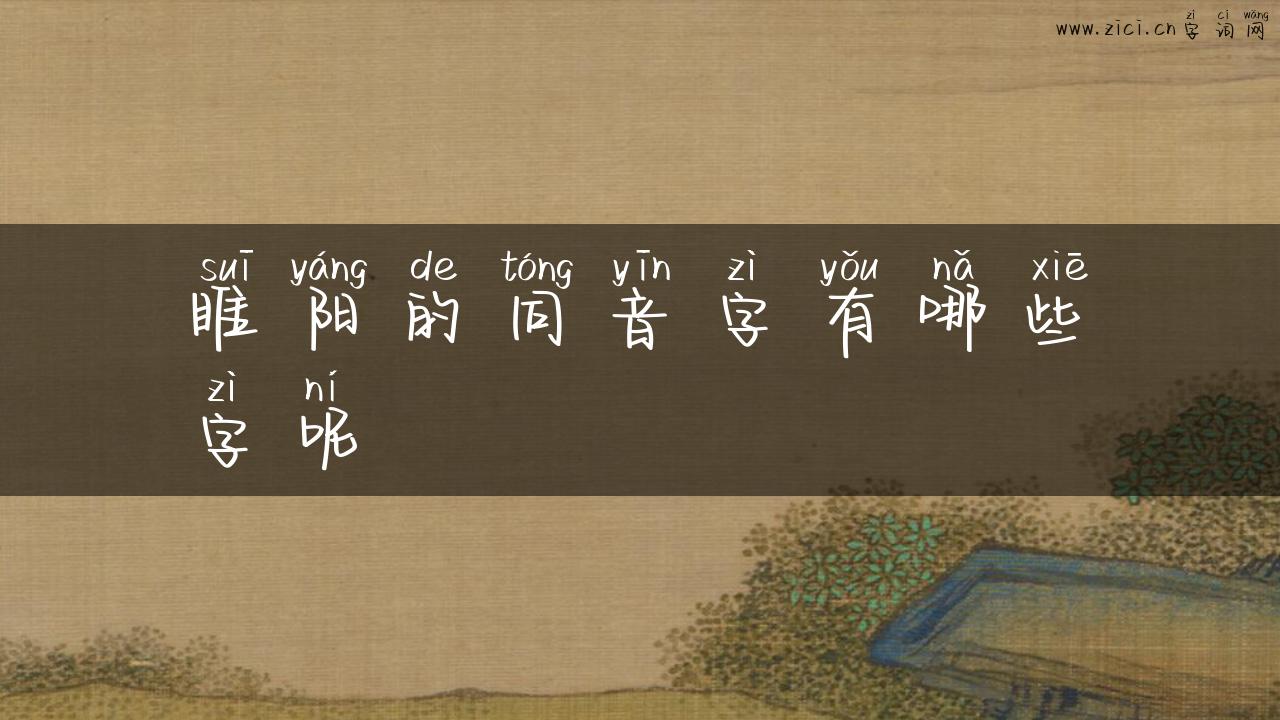 zì cí wǎng
www.zici.cn字词网
suī yáng de tóng yīn zì yǒu nǎ xiē
睢阳的同音字有哪些
zì ní
字呢